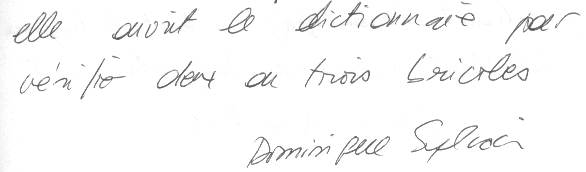 elle ouvrit le dictionnaire pour
vérifier deux ou trois bricoles
Dominique Sylvain